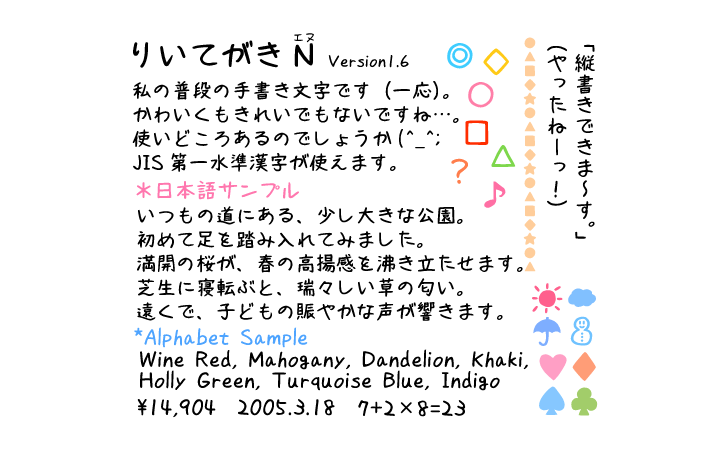 りいてがきN Version1.6
エヌ
私の普段の手書き文字です（一応）。
かわいくもきれいでもないですね…。
使いどころあるのでしょうか(^_^;
JIS第一水準漢字が使えます。
＊日本語サンプル
いつもの道にある、少し大きな公園。
初めて足を踏み入れてみました。
満開の桜が、春の高揚感を沸き立たせます。
芝生に寝転ぶと、瑞々しい草の匂い。
遠くで、子どもの賑やかな声が響きます。
*Alphabet Sample
Wine Red, Mahogany, Dandelion, Khaki,
Holly Green, Turquoise Blue, Indigo
¥14,904 2005.3.18 7+2×8=23
「縦書きできま〜す。」
（やったねーっ！）
◎◇○□△?♪
●▲■◆★●▲■◆★●▲■◆★●▲
☀☁
☂☃
♥♦
♠♣